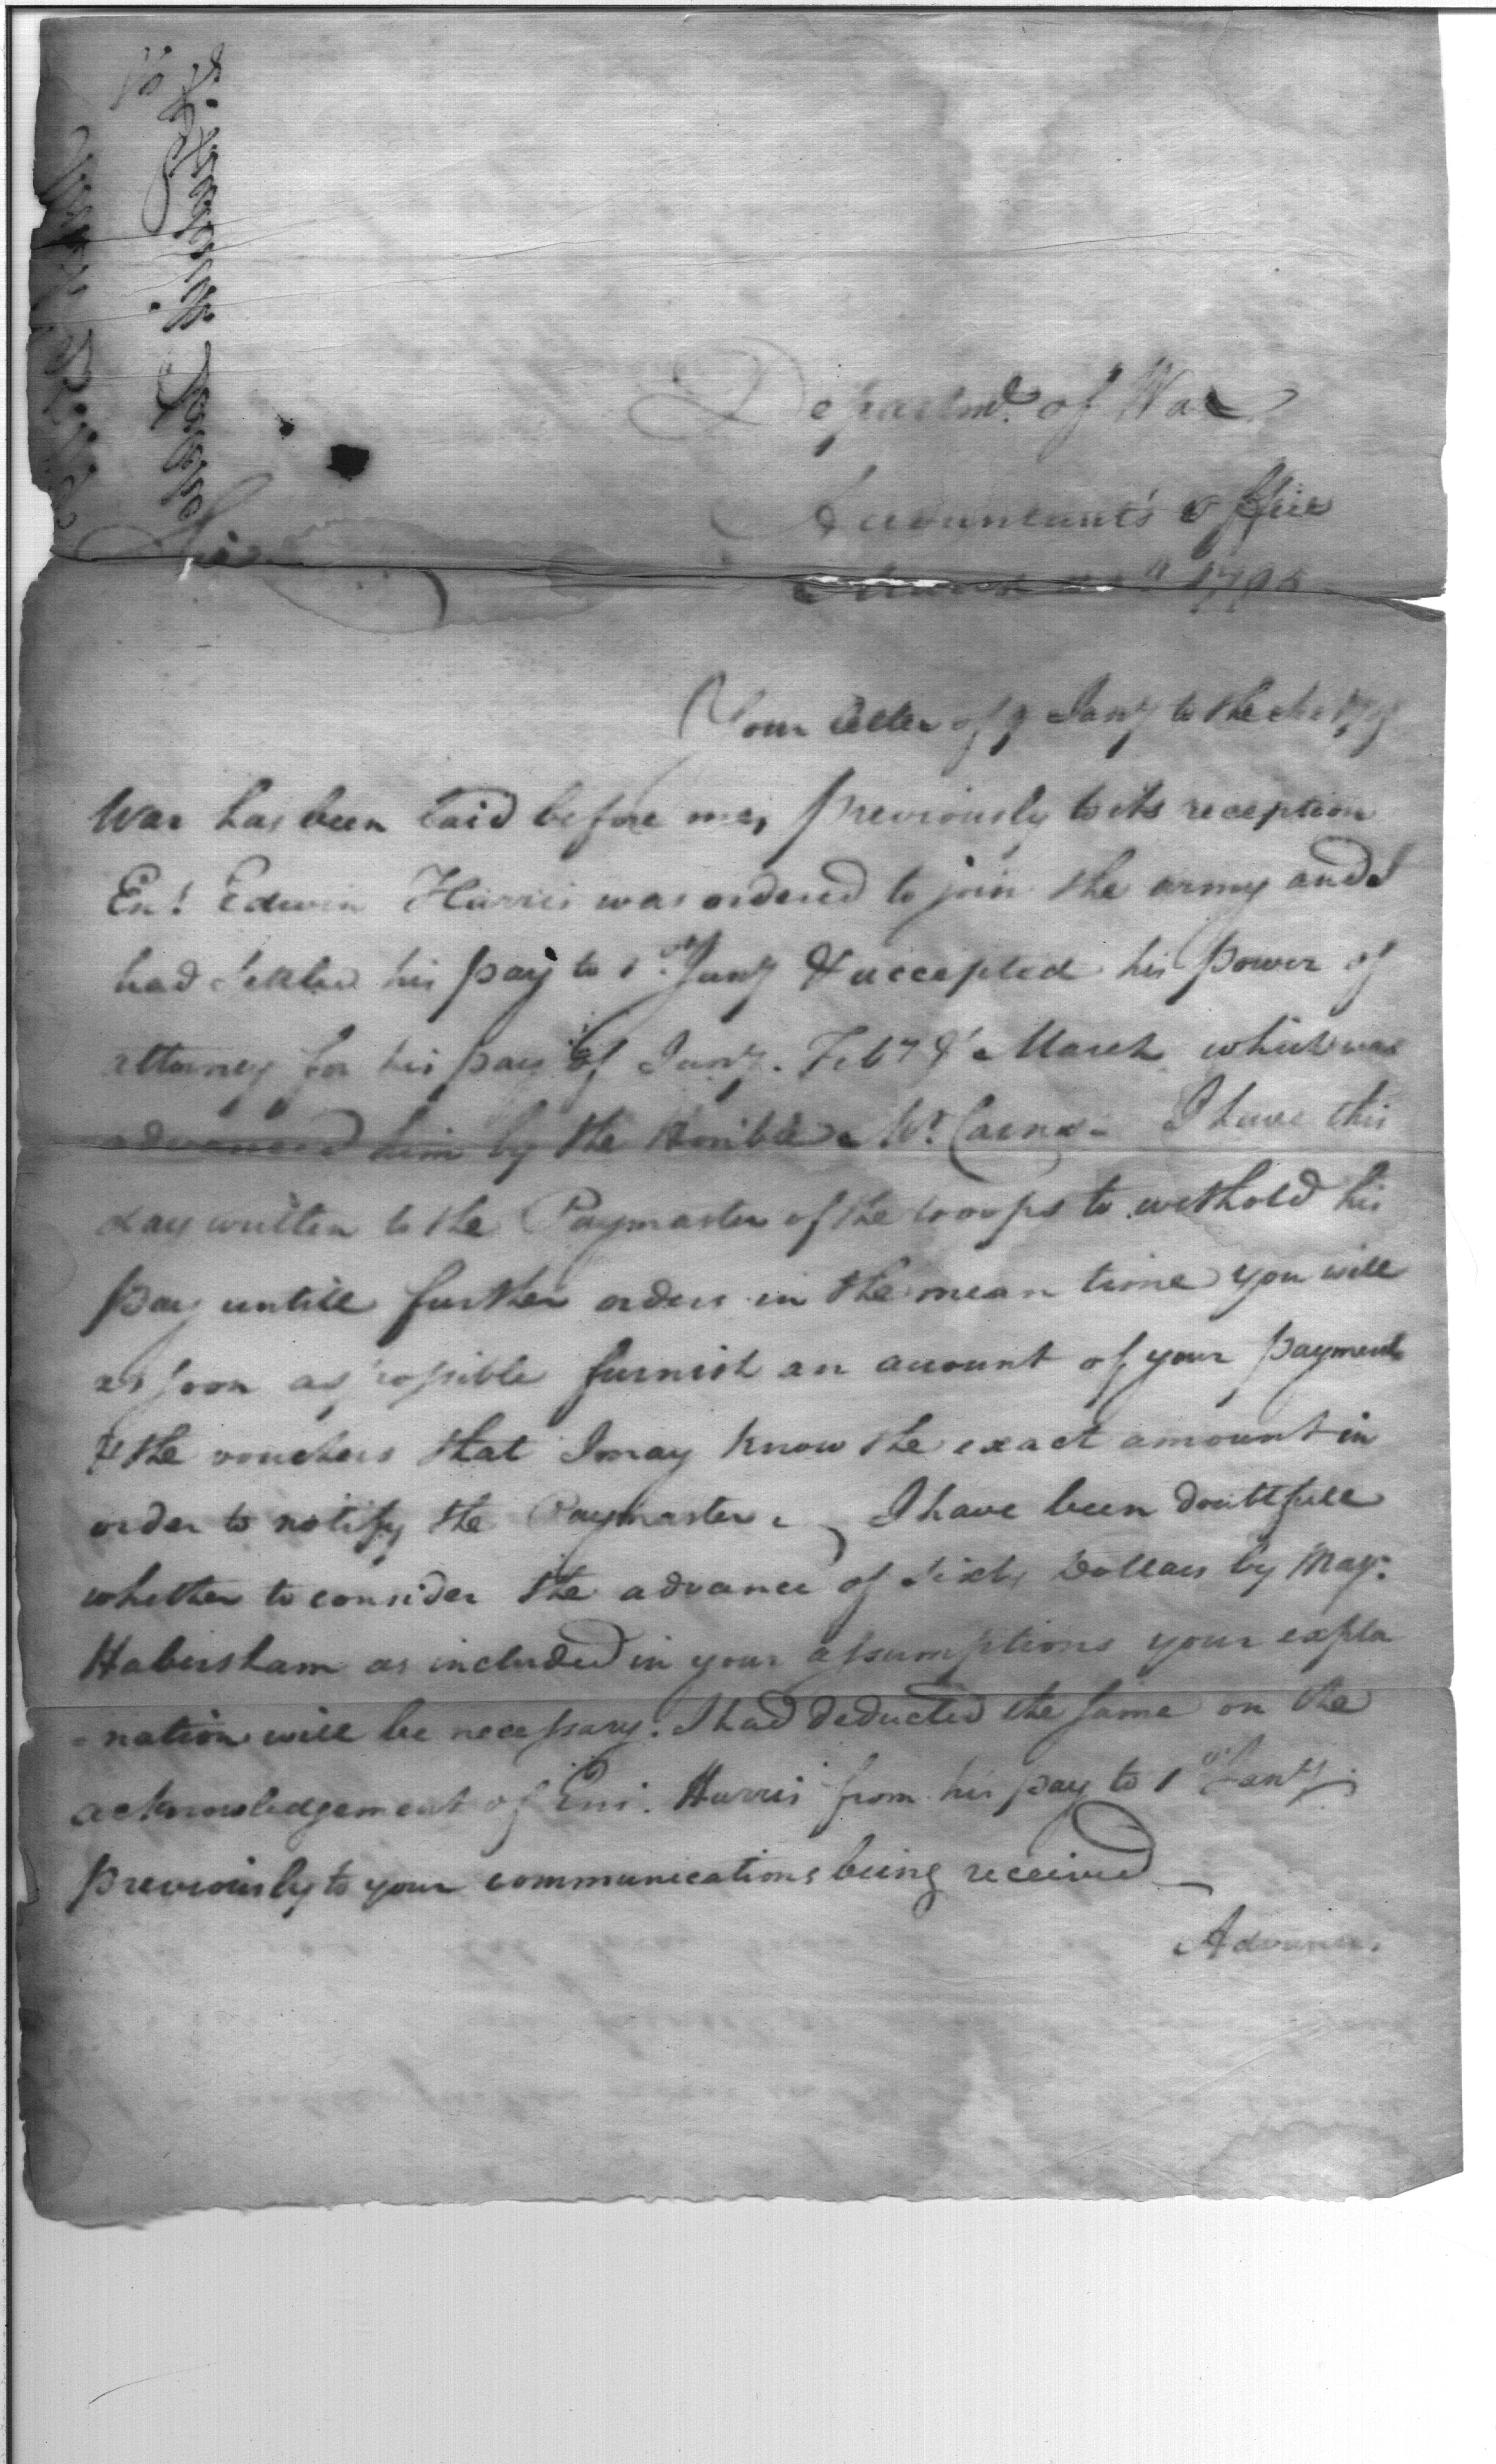 Departmt. of War
Accountant's office
March 1795
Sir
Your letter of 9 Jany to the Secy of
War has been laid before me, previously to its reception
Ens. Edwin Harris was ordered to join the army and I
had settled his pay to 1st Jany & accepted his power of
attorney for his pay of Jany. Feby & March which was
advanced him by the Honble Mr. Carnes. I have this
day written to the Paymaster of the troops to withold his
pay untill further orders in the mean time you will
as soon as possible furnish an account of your payments
& the vouchers that I may know the exact amount in
order to notify the Paymaster. I have been doubtfull
whether to consider the advance of sixty Dollars by Majr.
Habersham as included in your assumptions your expla
-nation will be necessary. I had deducted the same on the
acknowledgement of Ens. Harris from his pay to 1st Jany.
previously to your communications being received
Advance.